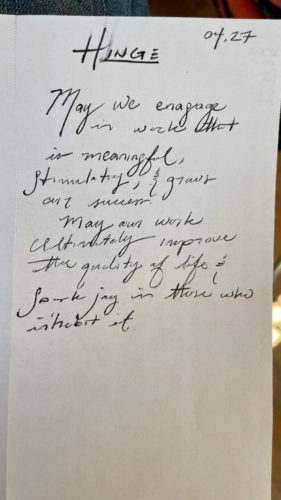 04.27
HINGE
May we enagage
in work that
is meaningful,
stimulating, & grows
our success.
May our work
ultimately improve
the quality of life &
spark joy in those who
inhabit it.